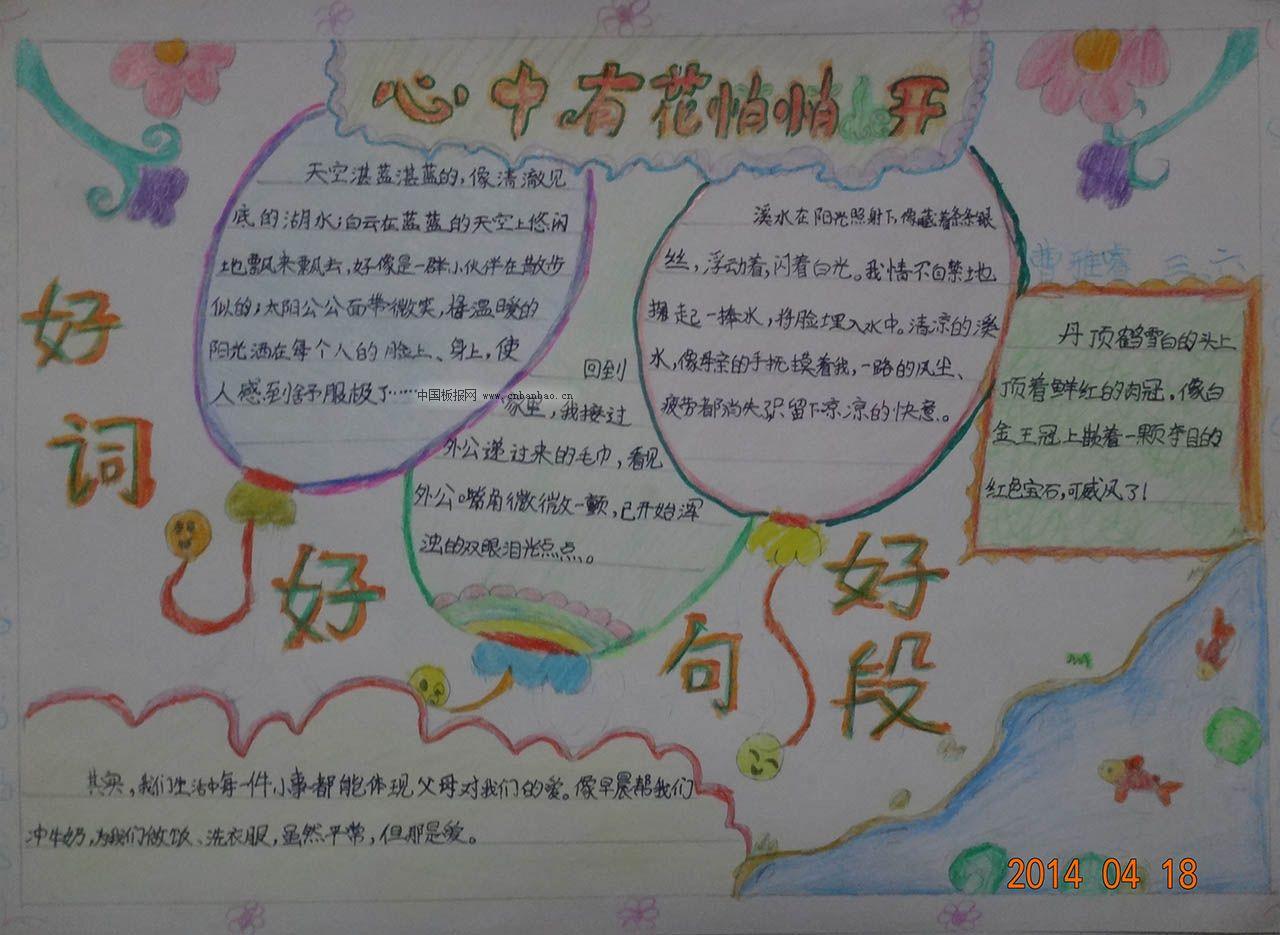 心中有花悄悄开
天空湛蓝湛蓝的，像清澈见
底的湖水；白云在蓝蓝的天空上悠闲
地飘来飘去，好像是一群小伙伴在散步
似的；太阳公公面带微笑，将温暖的
阳光洒在每个人的脸上、身上，使
人感到舒服极了……
中国板报网 www.cnbanbao.cn
溪水在阳光照射下，像藏着条条银
丝，浮动着，闪着白光。我情不自禁地
掬起一捧水，将脸埋入水中。清凉的溪
水，像母亲的手抚摸着我，一路的风尘、
疲劳都消失，只留下凉凉的快意。
曹雅睿 三、六
丹顶鹤雪白的头上
顶着鲜红的肉冠，像白
金王冠上嵌着一颗夺目的
红色宝石，可威风了！
回到
家里，我接过
外公递过来的毛巾，看见
外公嘴角微微一颤，已开始浑
浊的双眼泪光点点。
好
词
好
句
好
段
其实，我们生活中每一件小事都能体现父母对我们的爱。像早晨帮我们
冲牛奶，为我们做饭、洗衣服，虽然平常，但那是爱。
2014 04 18